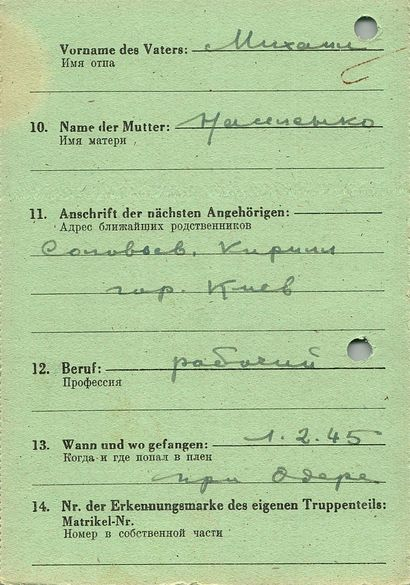 Vorname des Vaters: Михаил
Имя отца
10. Name der Mutter:
Имя матери
11. Anschrift der nächsten Angehörigen:
Адрес ближайших родственников
Соловьев, Кирилл
гор. Киев
12. Beruf: рабочий
Профессия
13. Wann und wo gefangen: 1.2.45
Когда и где попал в плен
при Одере
14. Nr. der Erkennungsmarke des eigenen Truppenteils:
Matrikel-Nr.
Номер в собственной части